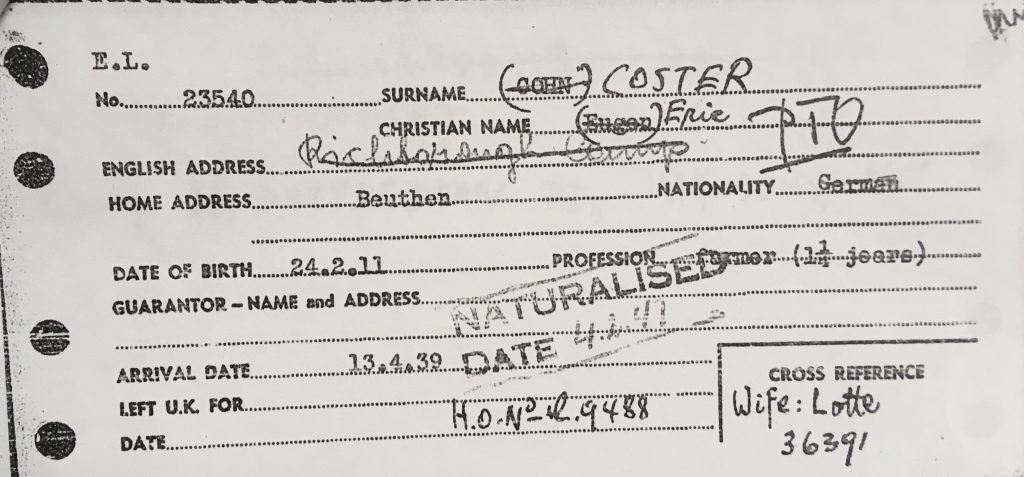 E.L.
No. 23540 SURNAME (COHN) COSTER
CHRISTIAN NAME (Eugen) Eric PTO
ENGLISH ADDRESS Richborough Camp.
HOME ADDRESS Beuthen NATIONALITY German
DATE OF BIRTH 24.2.11 PROFESSION farmer (1¼ jears)
GUARANTOR – NAME and ADDRESS
NATURALISED
DATE 4.2.47
ARRIVAL DATE 13.4.39
LEFT U.K. FOR
H.O. No
9488
DATE
CROSS REFERENCE
Wife: Lotte
36391